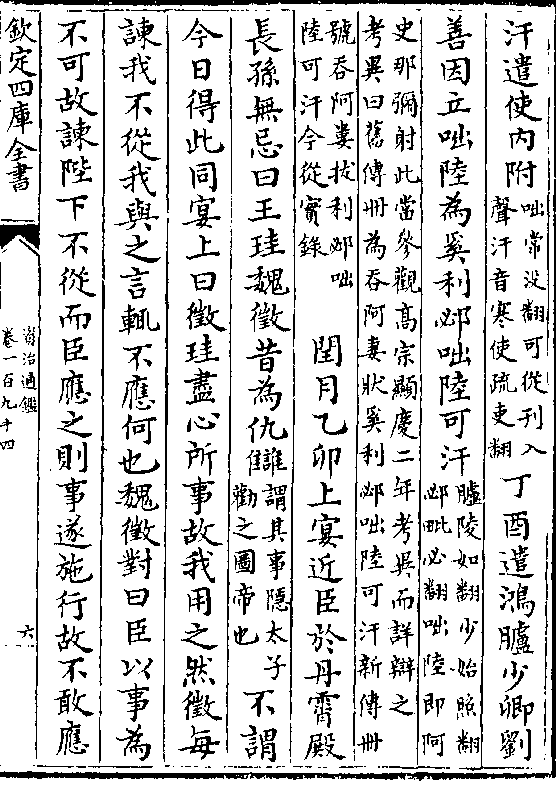 汗遣使内附咄常没翻可從刊入聲汗音寒使疏吏翻丁酉遣鴻臚少卿劉
善因立咄陸為奚利邲咄陸可汗臚陵如翻少始照翻邲毗必翻咄陸即阿
史那彌射此當參觀髙宗顯慶二年考異而詳辯之
考異曰舊傳冊為吞阿妻狀奚利邲咄陸可汗新傳冊
號吞阿婁拔利邲咄陸可汗今從實錄 閏月乙卯上宴近臣於丹霄殿
長孫無忌曰王珪魏徵昔為仇讎謂其事隱太子勸之圖帝也不謂
今日得此同宴上曰徵珪盡心所事故我用之然徵每
諫我不從我與之言輒不應何也魏徵對曰臣以事為
不可故諫陛下不從而臣應之則事遂施行故不敢應
欽定四庫全書
資治通鑑
卷一百九十四
六